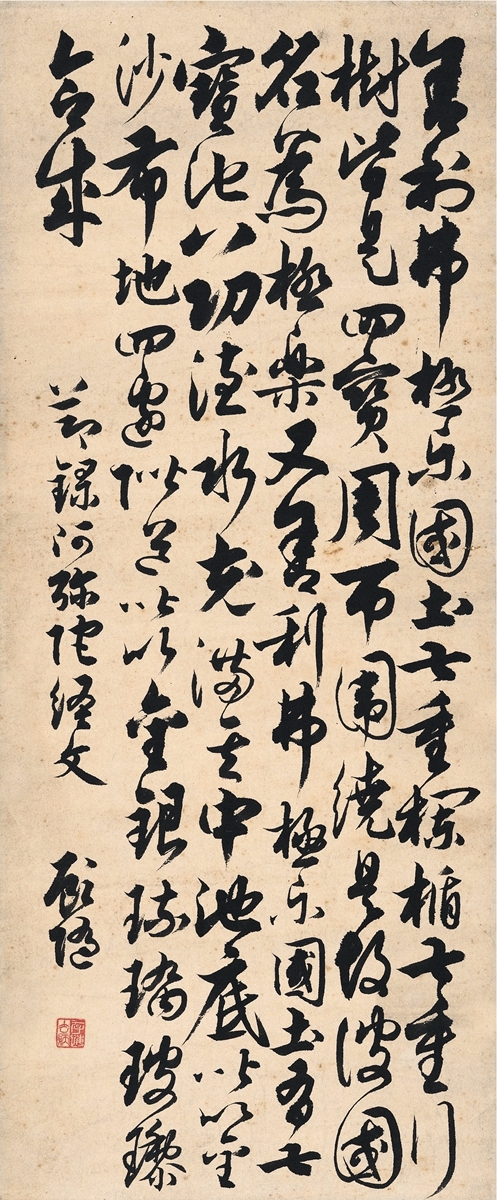 舍利弗極樂國土七重欄楯七重行
樹皆是四寶周帀圍繞是故彼國
名為極樂又舍利弗極樂國土有七
寶池八功德水充滿其中池底以金
沙布地四邊階道以金銀琉璃玻瓈
合成
節錄阿弥陀經文
顧隨